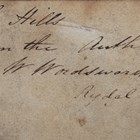 Hills
the Auth
W Wordswor
Rydal